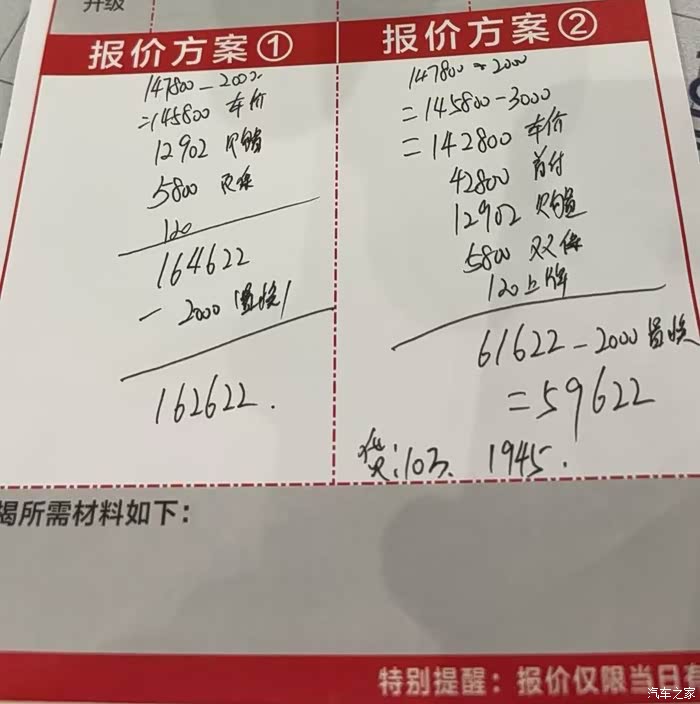 升级
报价方案①
147800-2000
=145800 车价
12902 购置
5800 双保
120
164622
- 2000(置换)
162622.
报价方案②
147800-2000
=145800-3000
=142800 车价
42800 首付
12902 购置
5800 双保
120上牌
61622-2000置换
=59622
贷:10万. 1945.
揭所需材料如下:
特别提醒:报价仅限当日有
汽车之家